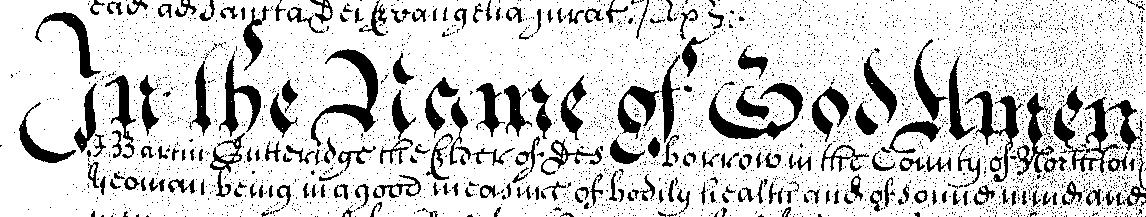 ead ad Sancta Dei Evangelia jurat. Exp:
In the Name of God Amen
I Martin Gutteridge the Elder of Desborrow in the County of Northton
yeoman being in a good measure of bodily health and of sound mind and